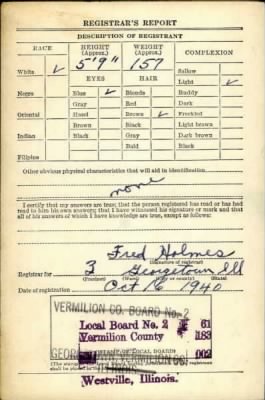 REGISTRAR'S REPORT
DESCRIPTION OF REGISTRANT
RACE HEIGHT (Approx.) WEIGHT (Approx.) COMPLEXION
5'9" 157
White ✓ Sallow
EYES HAIR Light ✓
Negro Blue ✓ Blonde Ruddy
Gray Red Dark
Oriental Hazel Brown ✓ Freckled
Brown Black Light brown
Indian Black Gray Dark brown
Bald Black
Filipino
Other obvious physical characteristics that will aid in identification
none
I certify that my answers are true; that the person registered has read or has had
read to him his own answers; that I have witnessed his signature or mark and that
all of his answers of which I have knowledge are true, except as follows:
Fred Holmes
(Signature of registrar)
Registrar for 3 Georgetown Ill
(Precinct) (Ward) (City or county) (State)
Date of registration Oct 16 1940
VERMILION CO. BOARD No. 2
Local Board No. 2 61
Vermilion County 183
(STAMP OF LOCAL BOARD) 002
GEORGETOWN VERMILION CO.
ILLINOIS
Westville, Illinois.